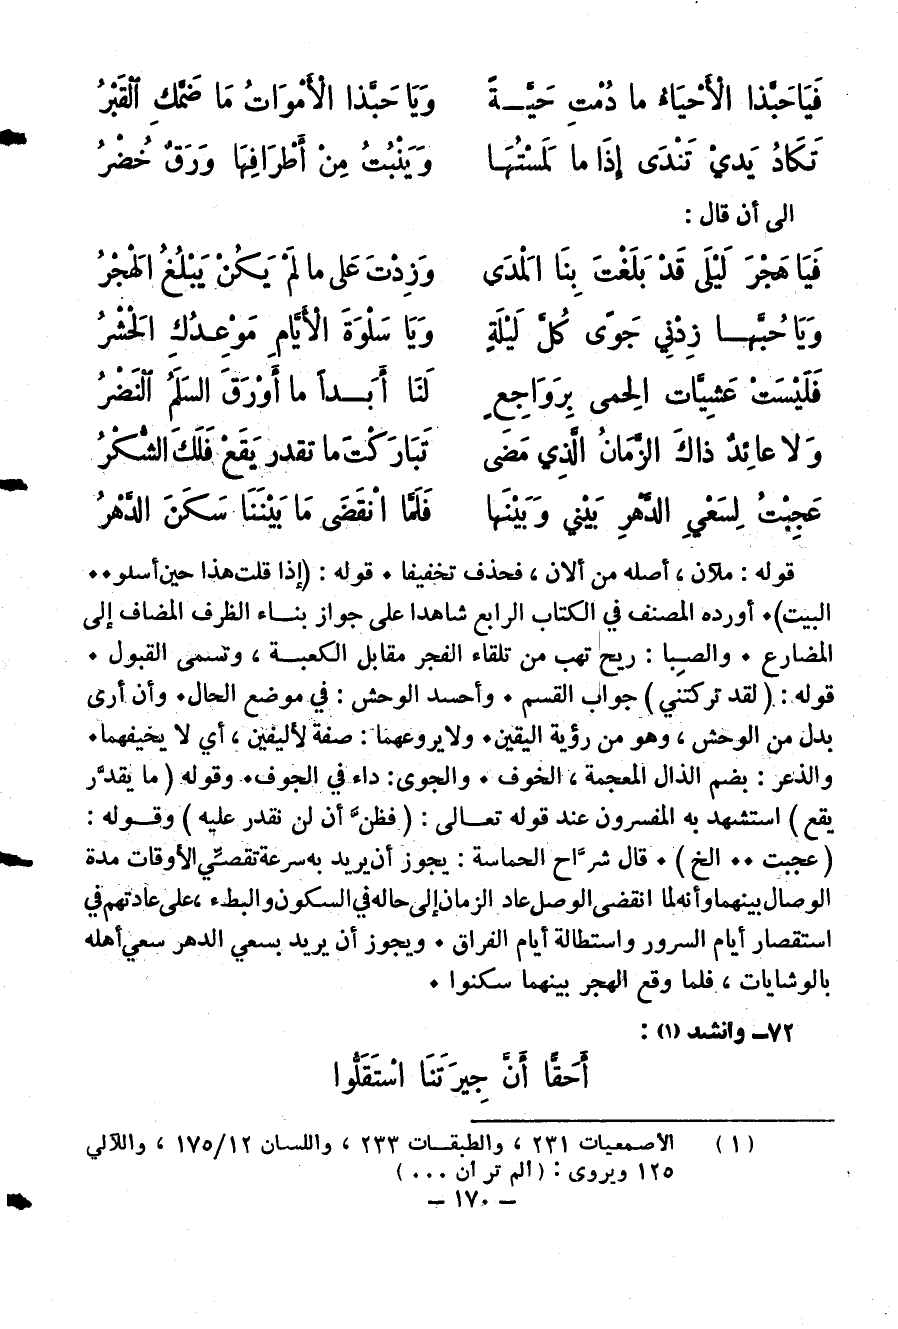 فَيَاحَبَّذا الْأَحْيَاءُ ما دُمْتِ حَيَّــةً وَيَا حَبَّذا الْأَمْوَاتُ مَا ضَمَّكِ الْقَبْرُ
تَكَادُ يَدِيْ تَنْدَى إِذَا ما لَمَسْتُهَا وَيَنْبُتُ مِنْ أَطْرَافِهَا وَرَقٌ خُضْرُ
الى أن قال :
فَيَا هَجْرَ لَيْلَى قَدْ بَلَغْتَ بِنَا الْمَدَى وَزِدْتَ عَلى ما لَمْ يَكُنْ يَبْلُغُ الْهَجْرُ
وَيَا حُبَّهــا زِدْنِي جَوًى كُلَّ لَيْلَةٍ وَيَا سَلْوَةَ الْأَيَّامِ مَوْعِدُكِ الْحَشْرُ
فَلَيْسَتْ عَشِيَّات الْحِمى بِرَوَاجِعٍ لَنَا أَبَــداً ما أَوْرَقَ السَّلَمُ النَّضْرُ
وَلا عائِدٌ ذاكَ الزَّمَانُ الَّذِي مَضَى تَبَارَكْتَ ما تقدر يَقَعْ فَلَكَ الشُّكْرُ
عَجِبْتُ لِسَعْيِ الدَّهْرِ بَيْنِي وَبَيْنَها فَلَمَّا انْقَضَى مَا بَيْنَنَا سَكَنَ الدَّهْرُ
قوله : ملآن ، أصله من ألان ، فحذف تخفيفا • قوله : (إذا قلت هذا حين أسلو ••
البيت)• أورده المصنف في الكتاب الرابع شاهدا على جواز بنــاء الظرف المضاف إلى
المضارع • والصبا : ريح تهب من تلقاء الفجر مقابل الكعبــة ، وتسمى القبول •
قوله : ( لقد تركتني ) جواب القسم • وأحسد الوحش : في موضع الحال• وأن أرى
بدل من الوحش ، وهو من رؤية اليقين• ولا يروعهما : صفة لأليفين ، أي لا يخيفهما•
والذعر : بضم الذال المعجمة ، الخوف • والجوى: داء في الجوف• وقوله ( ما يقدَّر
يقع ) استشهد به المفسرون عند قوله تعــالى : ( فظنَّ أن لن نقدر عليه ) وقــوله :
( عجبت •• الخ ) • قال شرَّاح الحماسة : يجوز أن يريد به سرعة تقضِّي الأوقات مدة
الوصال بينهما وأنه لما انقضى الوصل عاد الزمان إلى حاله في السكون والبطء ، على عادتهم في
استقصار أيام السرور واستطالة أيام الفراق • ويجوز أن يريد بسعي الدهر سعي أهله
بالوشايات ، فلما وقع الهجر بينهما سكنوا •
٧٢ـ وانشد (١) :
أَحَقًّا أَنَّ جِيرَتَنَا اسْتَقَلُّوا
(١) الأصمعيات ٢٣١ ، والطبقــات ٢٣٣ ، واللسان ١٧٥/١٢ ، واللآلي
١٢٥ ويروى : ( ألم تر أن ... )
– ١٧٠ –